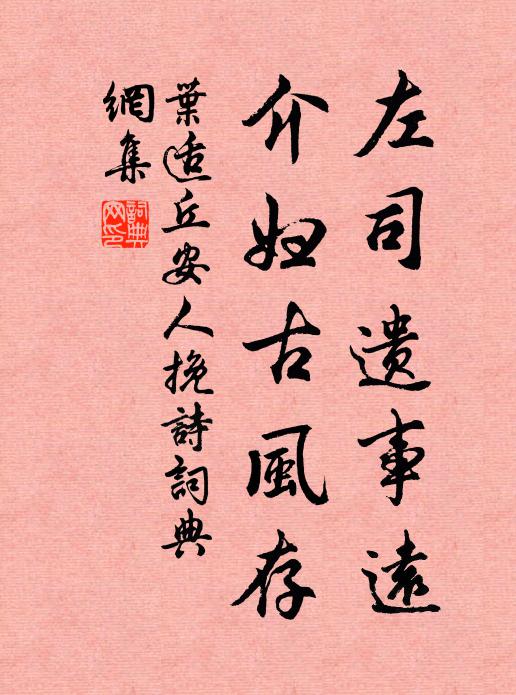 左司遺事遠
介婦古風存
葉适丘安人挽詩詞典
網集
詞典
网印